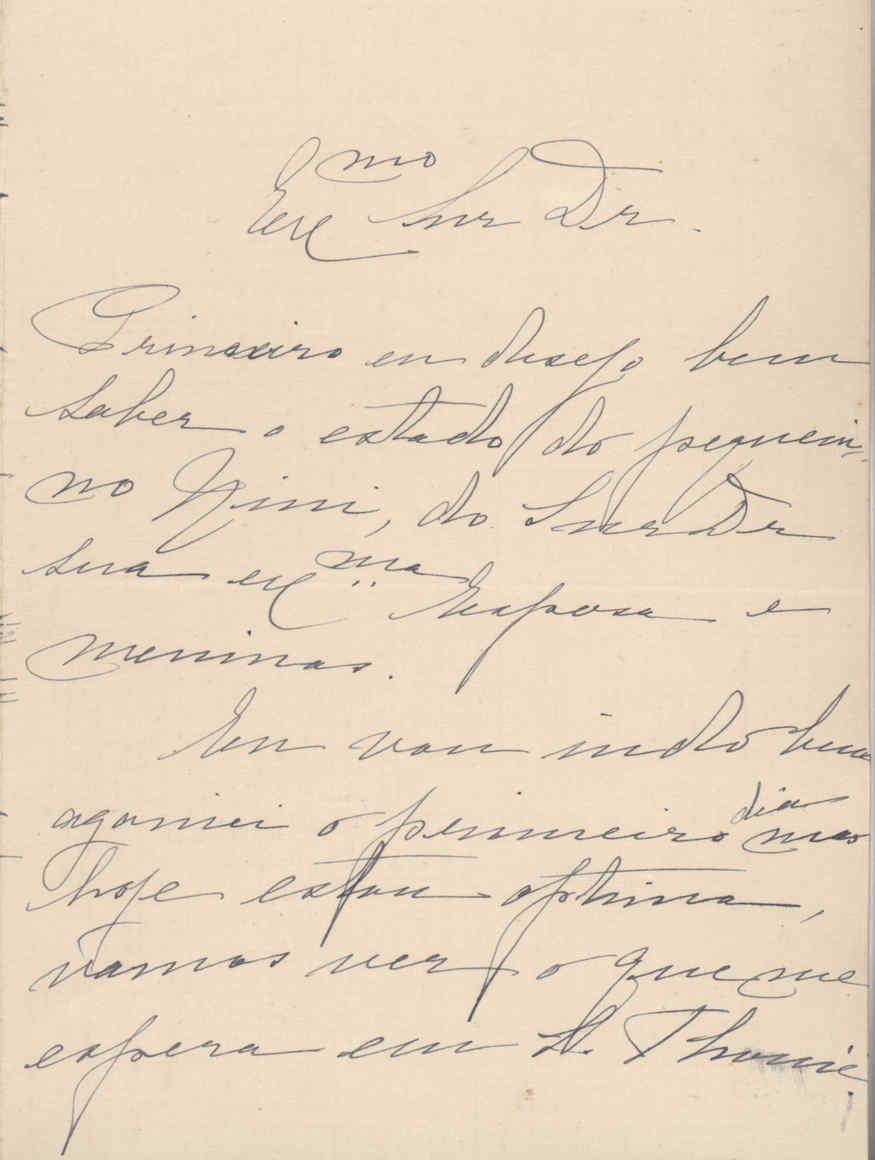 Exc.mo Snr Dr.
Primeiro eu desejo bem
saber o estado do pequeni-
no Nini, do Snr Dr
sua exc.ma Esposa e
meninas.
Eu vou indo bem
agoniei o primeiro dia mas
hoje estou optima,
vamos ver o que me
espera em S. Thomé.